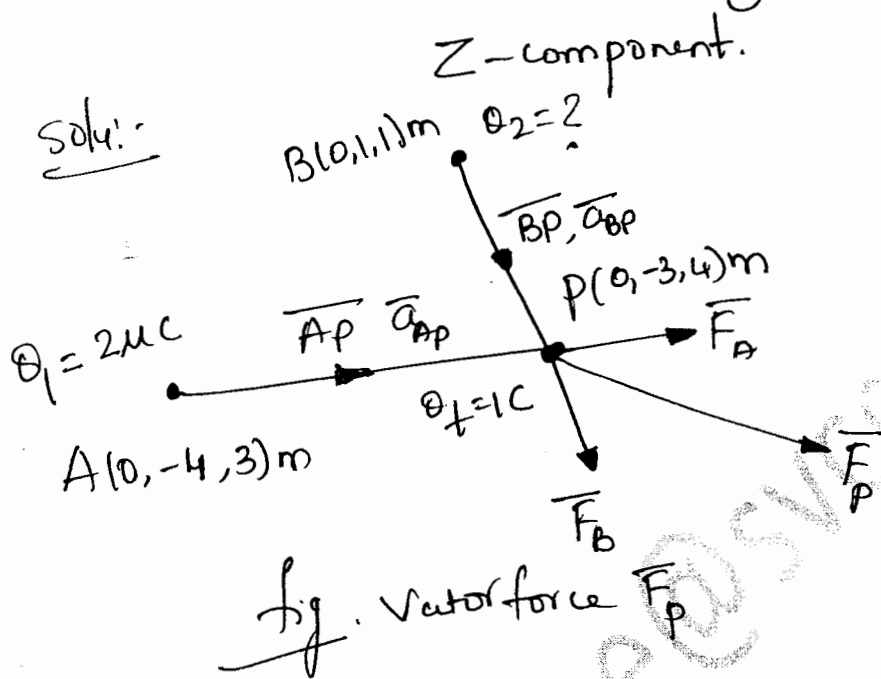 Z-component.
Soln:-
B(0,1,1)m Q2=?
BP, aBP
P(0,-3,4)m
Q1=2μC
AP aAP
FA
Qt=1C
A(0,-4,3)m
FP
FB
fig. Vector force FP